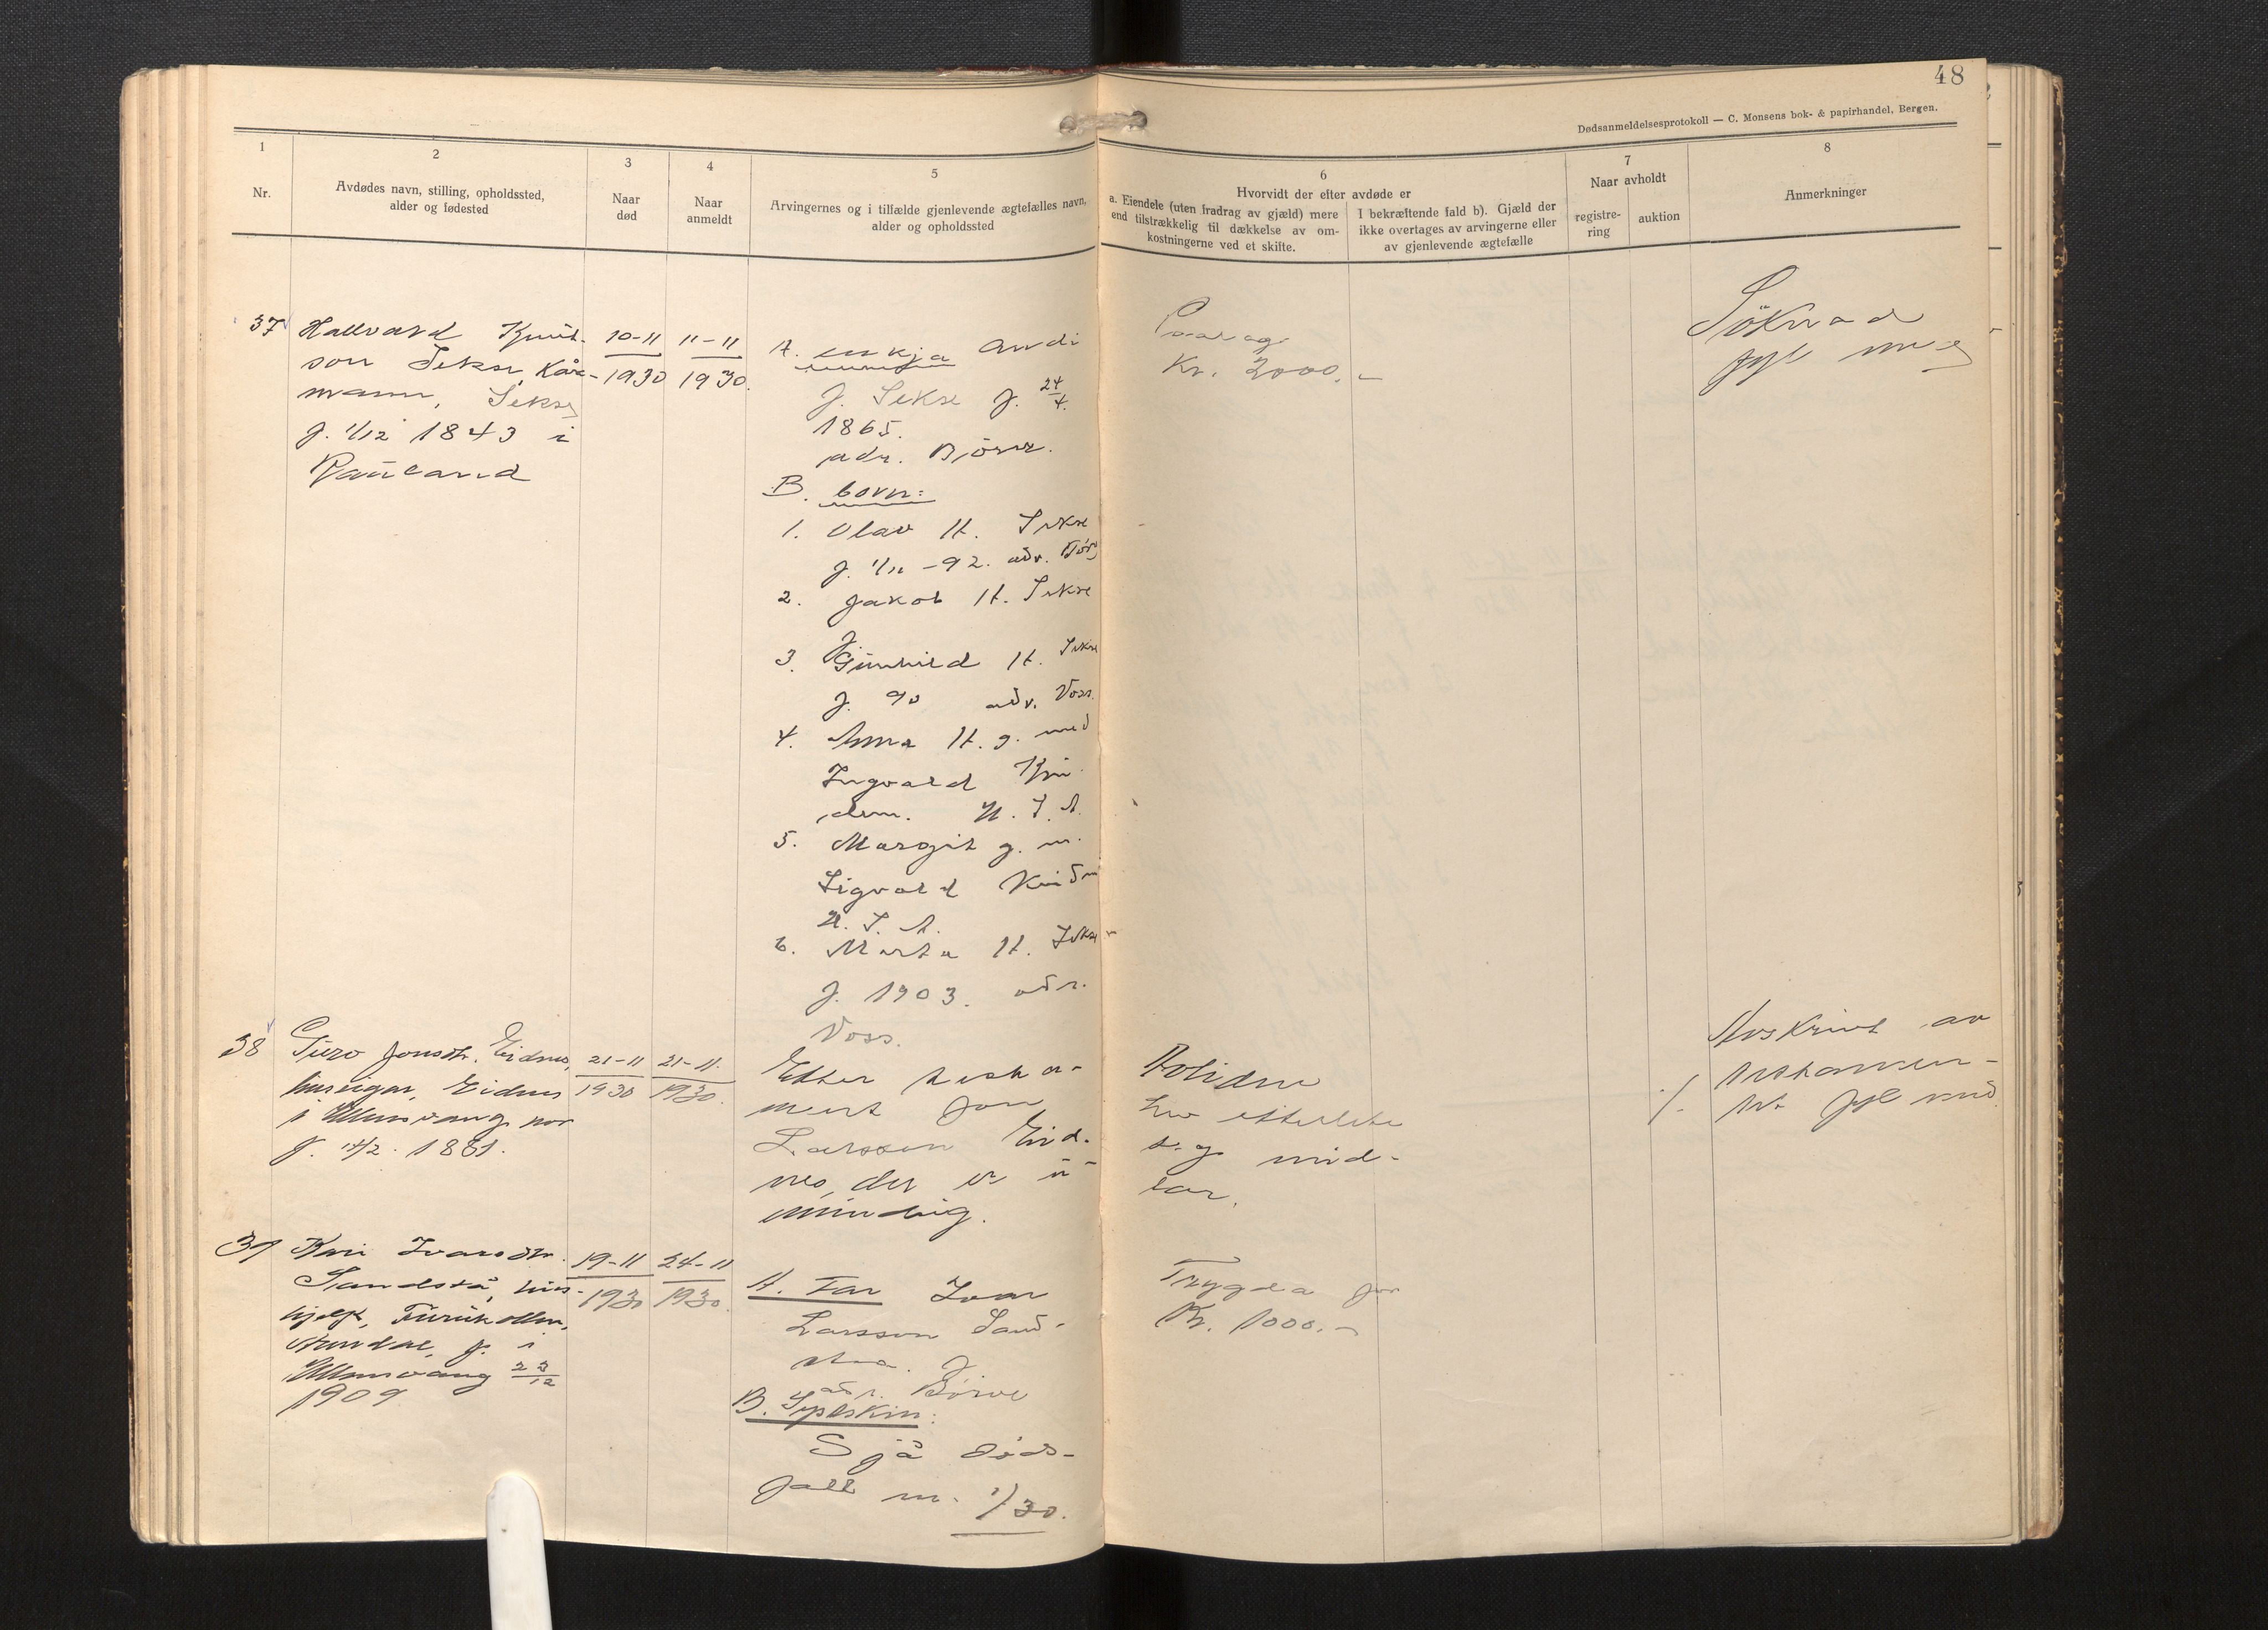 48
Dødsanmeldelsesprotokoll — C. Monsens bok- & papirhandel, Bergen.
1
Nr.
2
Avdødes navn, stilling, opholdssted,
alder og fødested
3
Naar
død
4
Naar
anmeldt
5
Arvingernes og i tilfælde gjenlevende ægtefælles navn,
alder og opholdssted
6
Hvorvidt der efter avdøde er
a. Eiendele (uten fradrag av gjæld) mere
end tilstrækkelig til dækkelse av om-
kostningerne ved et skifte.
I bekræftende fald b). Gjæld der
ikke overtages av arvingerne eller
av gjenlevende ægtefælle
7
Naar avholdt
registre-
ring
auktion
8
Anmerkninger
37
Hallvard Knut-
son Sekse, Kår-
mann, Sekse
f. 1/12 1843 i
Rauland
10-11
1930
11-11
1930.
A. enkja
J. Sekse f. 24/4.
1865.
adr. Børve.
B. born:
1. Olav H. Sekse
f. 1/11 -92. adr.
2. Jakob H. Sekse
f.
3. Gunhild H. Sekse
f. 90 adr. Voss.
4. Anna H. g. med
Ingvald
U. S. A.
5. Margit g. m.
Sigvald
U. S. A.
6. Marta H. Sekse
f. 1903. adr.
Voss.
Kr. 3000.-
Söknad
fylgje
38
Guro Jonsdtr. Eidnes,
huseigar, Eidnes
i Ullensvang
21-11
1930
21-11.
1930.
Etter testa-
ment Jon
Larsson Eid-
nes, der er u-
mündig.
efterlete
seg mid-
lar.
Avskrivt av
testamen-
tet fylgjer
39
Kari Ivarsdtr.
Sandstå, hus-
hjelp,
Arendal, f. i
Ullensvang 23/12
1909
19-11
1930
24-11
1930.
A. Far Ivar
Larsson Sand-
staa. f.
adr. Börve
B. Sysken:
Sjå döds-
fall nr. 1/30.
Trygda for
Kr. 1000.-